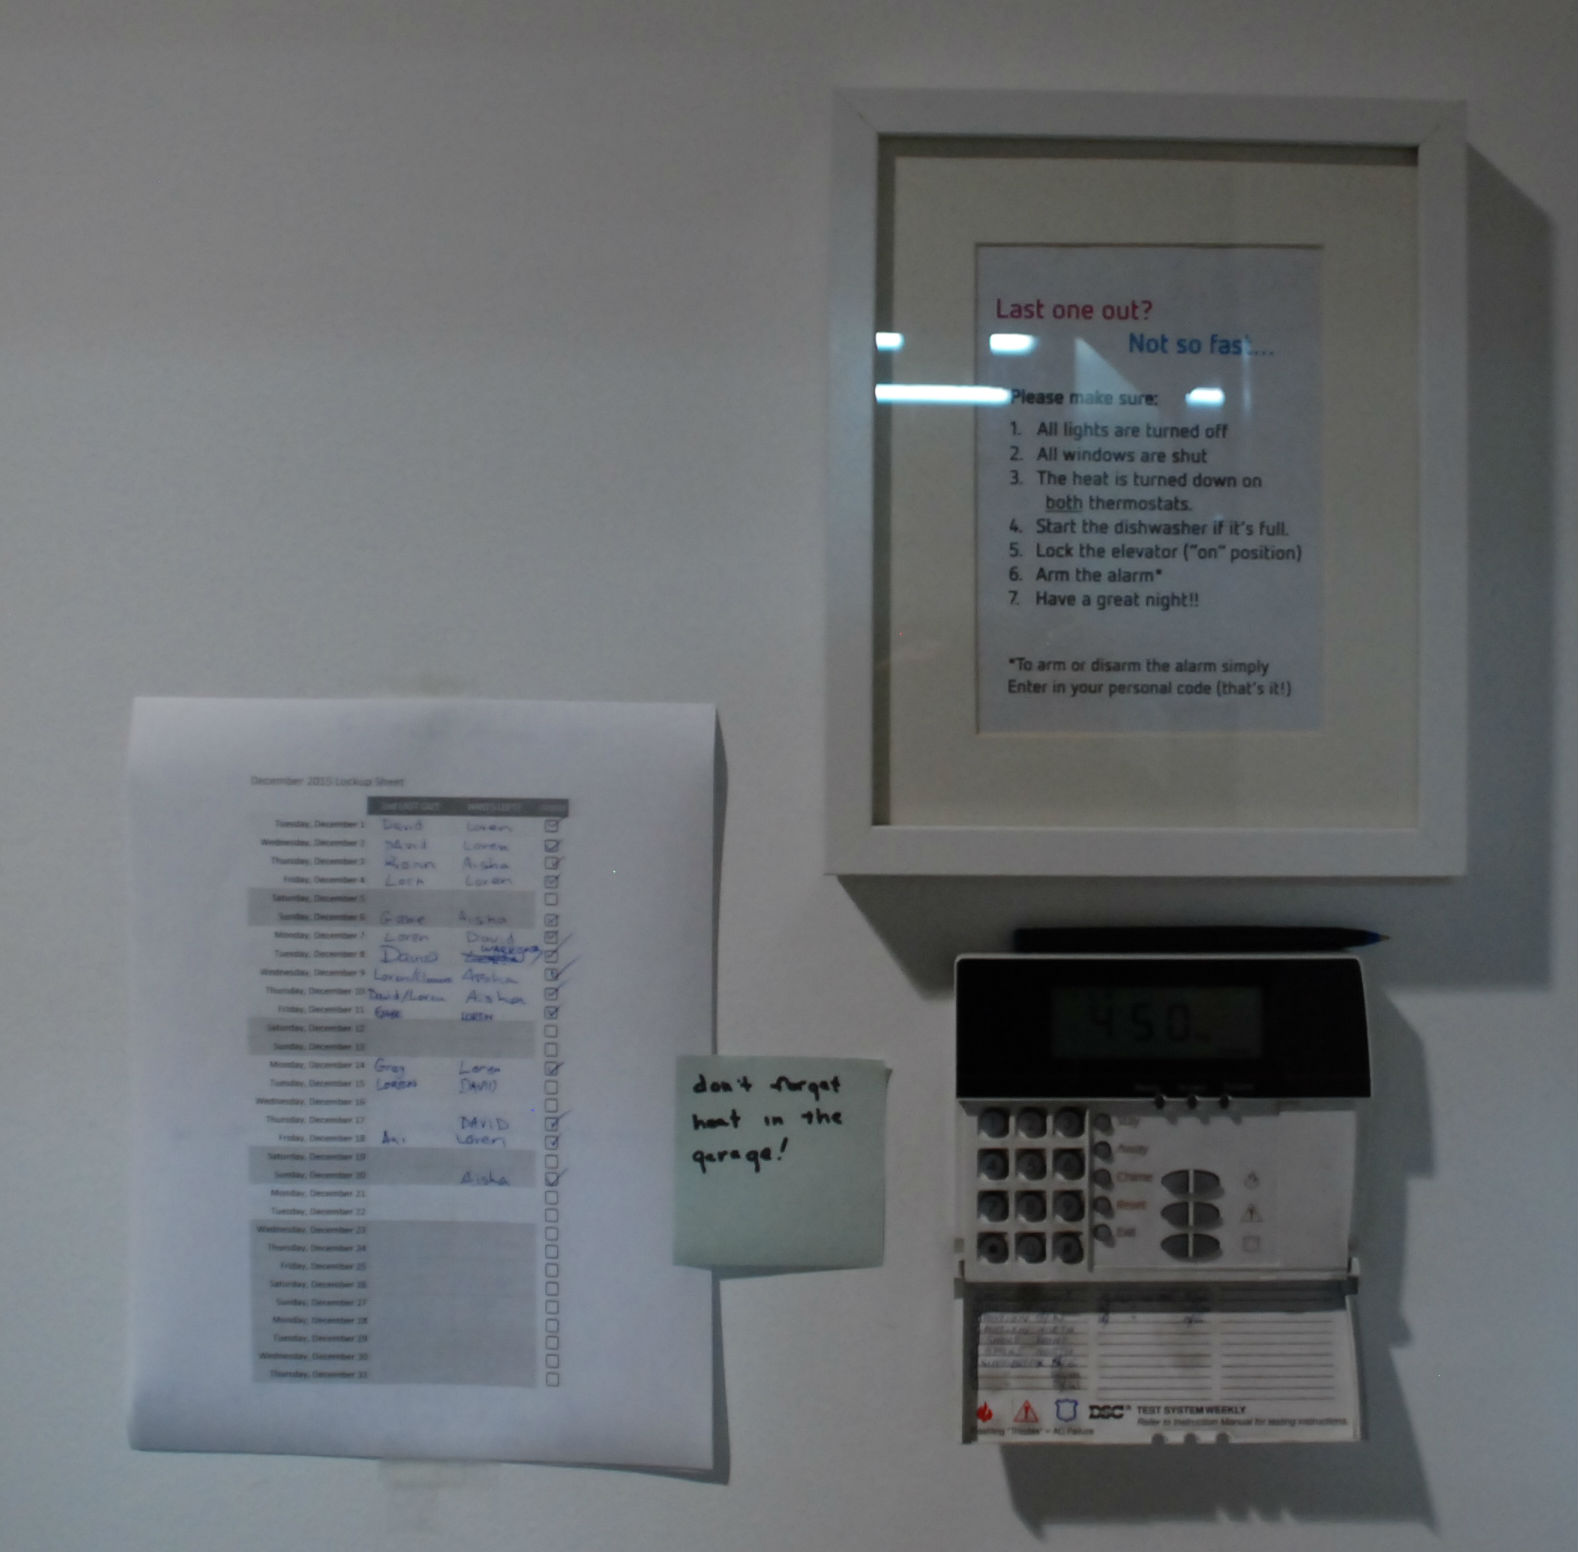 Last one out?
Not so fast...
Please make sure:
1. All lights are turned off
2. All windows are shut
3. The heat is turned down on
both thermostats.
4. Start the dishwasher if it's full.
5. Lock the elevator ("on" position)
6. Arm the alarm*
7. Have a great night!!
*To arm or disarm the alarm simply
Enter in your personal code (that's it!)
December 2015 Lockup Sheet
2nd LAST OUT WHO'S LEFT?
Tuesday, December 1 David Loren
Wednesday, December 2 David Loren
Thursday, December 3 Aisha
Friday, December 4 Loren
Saturday, December 5
Sunday, December 6 Gabe Aisha
Monday, December 7 Loren David
Tuesday, December 8 David
Wednesday, December 9 Aisha
Thursday, December 10 David/Loren Aisha
Friday, December 11 GABE LOREN
Saturday, December 12
Sunday, December 13
Monday, December 14 Greg Loren
Tuesday, December 15 LOREN DAVID
Wednesday, December 16
Thursday, December 17 DAVID
Friday, December 18 Ani Loren
Saturday, December 19
Sunday, December 20 Aisha
Monday, December 21
Tuesday, December 22
Wednesday, December 23
Thursday, December 24
Friday, December 25
Saturday, December 26
Sunday, December 27
Monday, December 28
Tuesday, December 29
Wednesday, December 30
Thursday, December 31
don't forget
heat in the
garage!
4:50
Stay
Away
Chime
Reset
Exit
DSC TEST SYSTEM WEEKLY
Refer to Instruction Manual for testing instructions.
Flashing "Trouble" = AC Failure